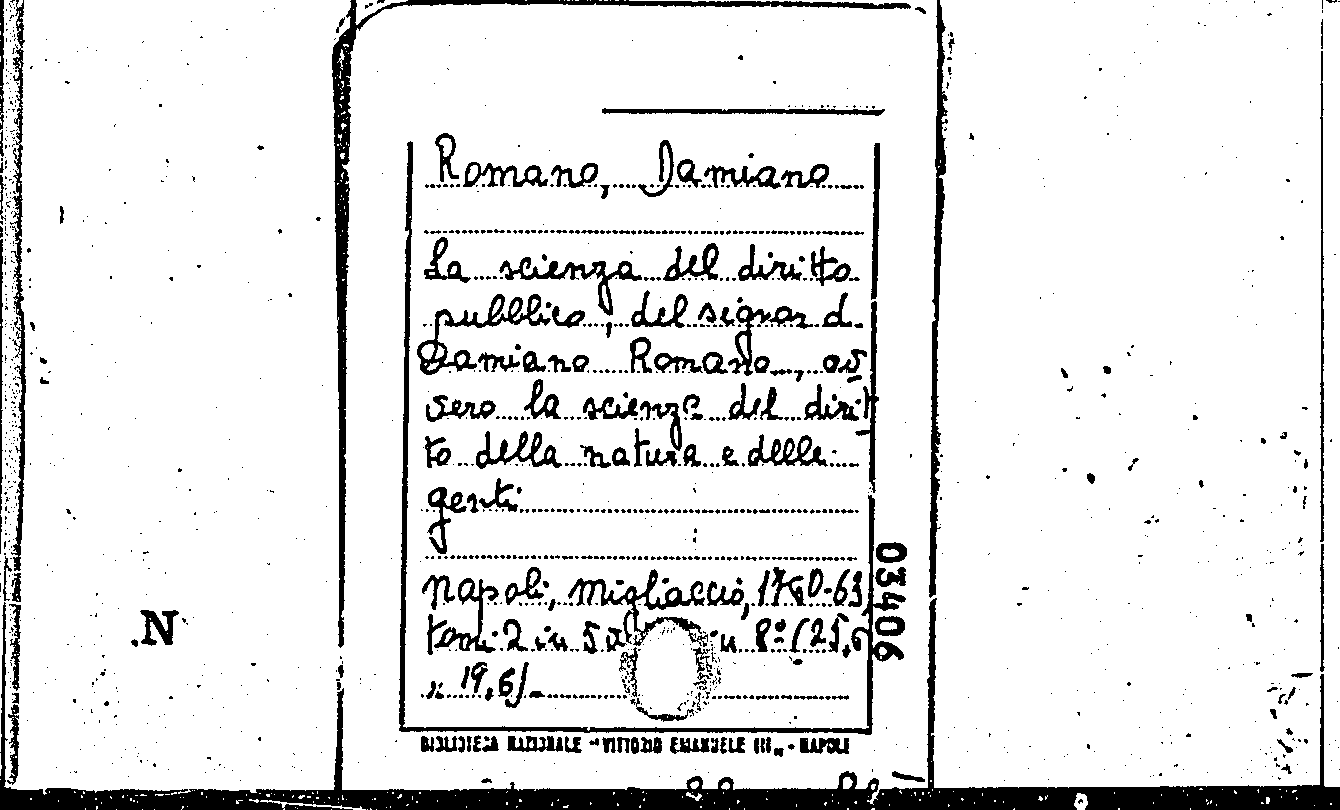 Romano, Damiano
La scienza del diritto
pubblico, del signor d.
Damiano Romano, ov
vero la scienza del dirit
to della natura e delle
genti
Napoli, Migliaccio, 1760-63,
tomi 2 in 5 in 8º (25,6
x 19,6)-
BIBLIOTECA NAZIONALE "VITTORIO EMANUELE III" - NAPOLI
03406
.N